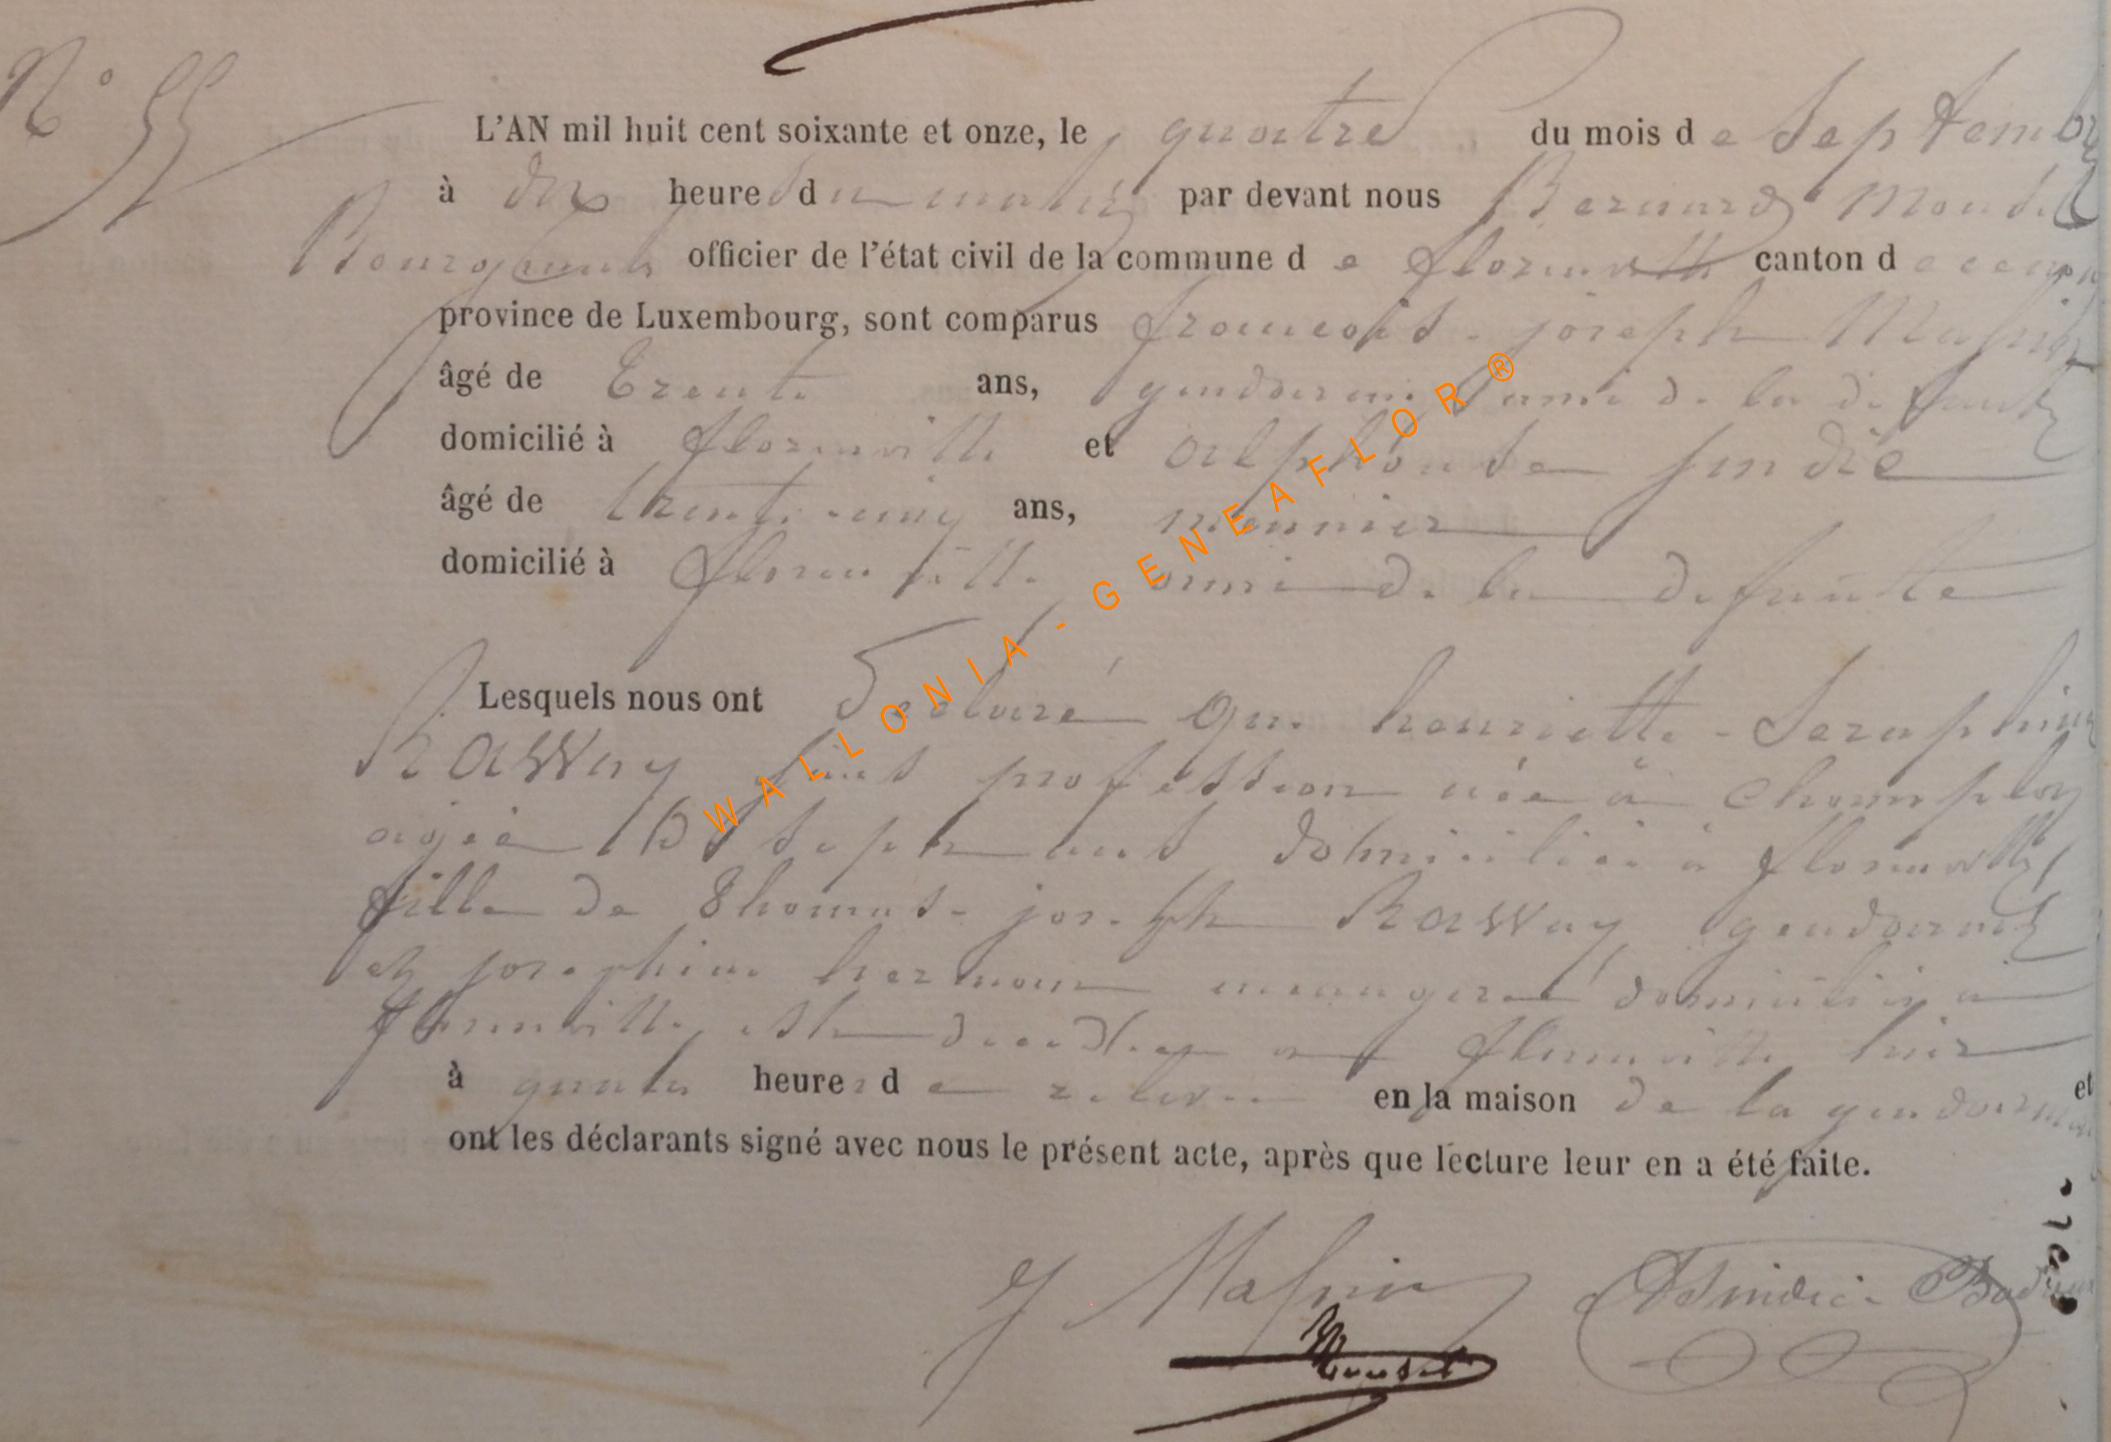 N° 55
L'AN mil huit cent soixante et onze, le quatre du mois de Septembre
à dix heures du matin par devant nous Bernard Maudet
Bourgmestre officier de l'état civil de la commune de florenville canton de
province de Luxembourg, sont comparus francois-joseph
âgé de Trente ans, gendarme ami de la defunte
domicilié à florenville et alphonse sindic
âgé de trente-cinq ans, meunier
domicilié à florenville ami de la defunte
Lesquels nous ont declaré que henriette-Seraphine
RaWWay sans profession née à Champlon
agée de sept ans domiciliée à florenville
fille de Thomas-joseph RaWWay gendarme
et josephine herman menagere domiciliés à
florenville est decedée a florenville hier
à quatre heures de relevée en la maison de la gendarmerie et
ont les déclarants signé avec nous le présent acte, après que lecture leur en a été faite.
WALLONIA-GENEAFLOR®